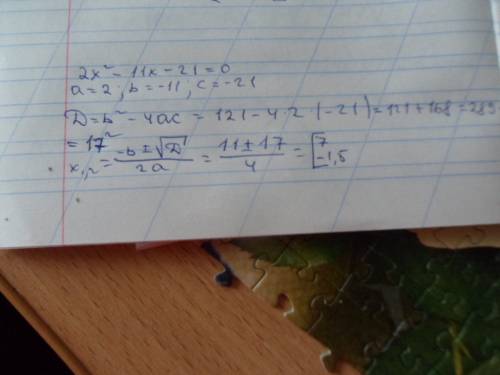 2x² - 11x - 21 = 0
a = 2; b = -11; c = -21
D = b² - 4ac = 121 - 4·2·(-21) = 121 + 168 = 289
= 17²
x₁,₂ = (-b ± √D)/2a = (11 ± 17)/4 = [7 -1,5